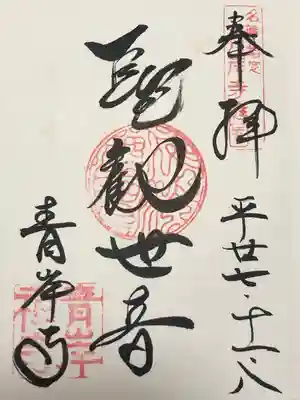 奉拝
平廿七・十一・八
聖観世音
青岸寺